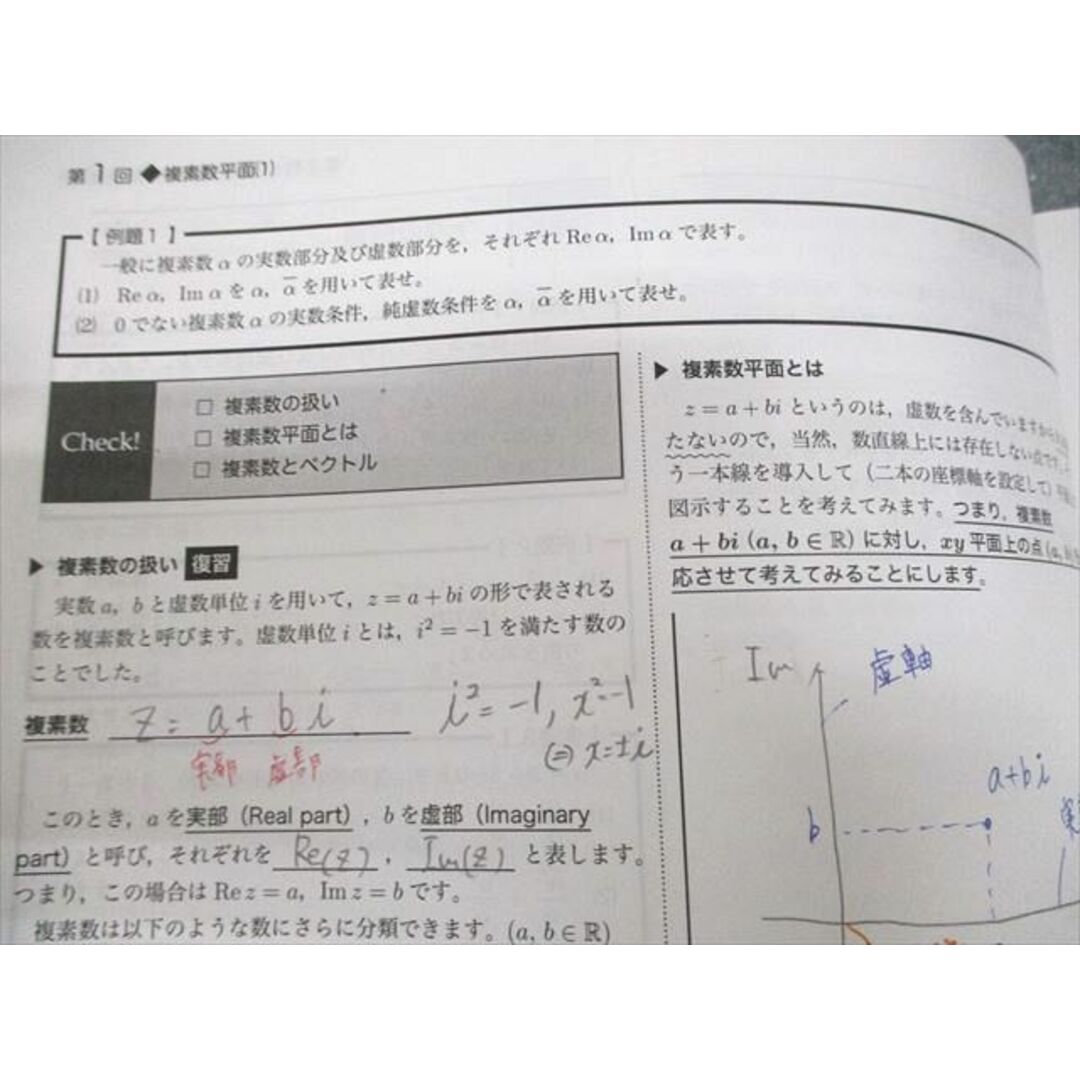 第1回◆複素数平面(1)
【例題1】
一般に複素数αの実数部分及び虚数部分を，それぞれReα，Imαで表す。
(1) Reα，Imαをα，α̅を用いて表せ。
(2) 0でない複素数αの実数条件，純虚数条件をα，α̅を用いて表せ。
Check!
□ 複素数の扱い
□ 複素数平面とは
□ 複素数とベクトル
▶ 複素数の扱い 復習
実数a，bと虚数単位iを用いて，z＝a＋biの形で表される
数を複素数と呼びます。虚数単位iとは，i²＝－1を満たす数の
ことでした。
複素数 z = a + bi
i² = -1, x² = -1
⇔ x = ±i
実部 虚部
このとき，aを実部（Real part），bを虚部（Imaginary
part）と呼び，それぞれを Re(z)， Im(z) と表します。
つまり，この場合はRe z＝a，Im z＝bです。
複素数は以下のような数にさらに分類できます。(a, b∈ℝ)
▶ 複素数平面とは
z＝a＋biというのは，虚数を含んでいますから
たないので，当然，数直線上には存在しない点です
う一本線を導入して（二本の座標軸を設定して）
図示することを考えてみます。つまり，複素数
a＋bi (a, b∈ℝ) に対し，xy平面上の点(a,
応させて考えてみることにします。
Im 虚軸
a+bi
b
実